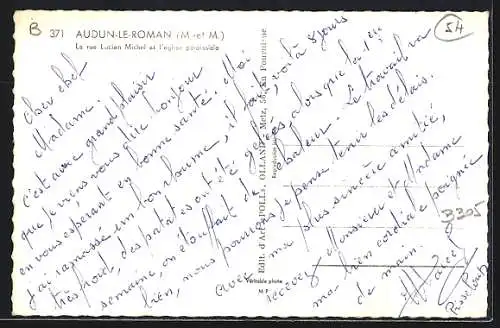 B 371 AUDUN-LE-ROMAN (M.-et M.)
La rue Lucien Michel et l'église paroissiale
54
Cher chef
Madame,
C'est avec grand plaisir
que je viens vous dire bonjour
en vous espérant en bonne santé. Moi
j'ai ramassé un bon rhume, il fait
très froid, des patates ont été gelées
semaine, on étouffait de chaleur. Le travail va
bien, nous pourrons je pense tenir les délais.
voilà 8 jours
alors que la 1ère
Avec ma plus sincère amitié,
recevez Monsieur et Madame
ma bien cordiale poignée
de main.
Edit. d'Art APOLL. OLLAND, Metz, 55, En Fournirue
Véritable photo
B305